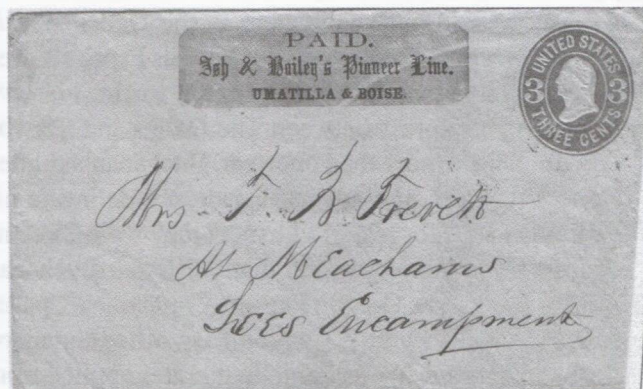 PAID.
Ish & Bailey's Pioneer Line.
UMATILLA & BOISE.
UNITED STATES
3 3
THREE CENTS
Mrs. T. B Trevett
At Meachams
Lees Encampment